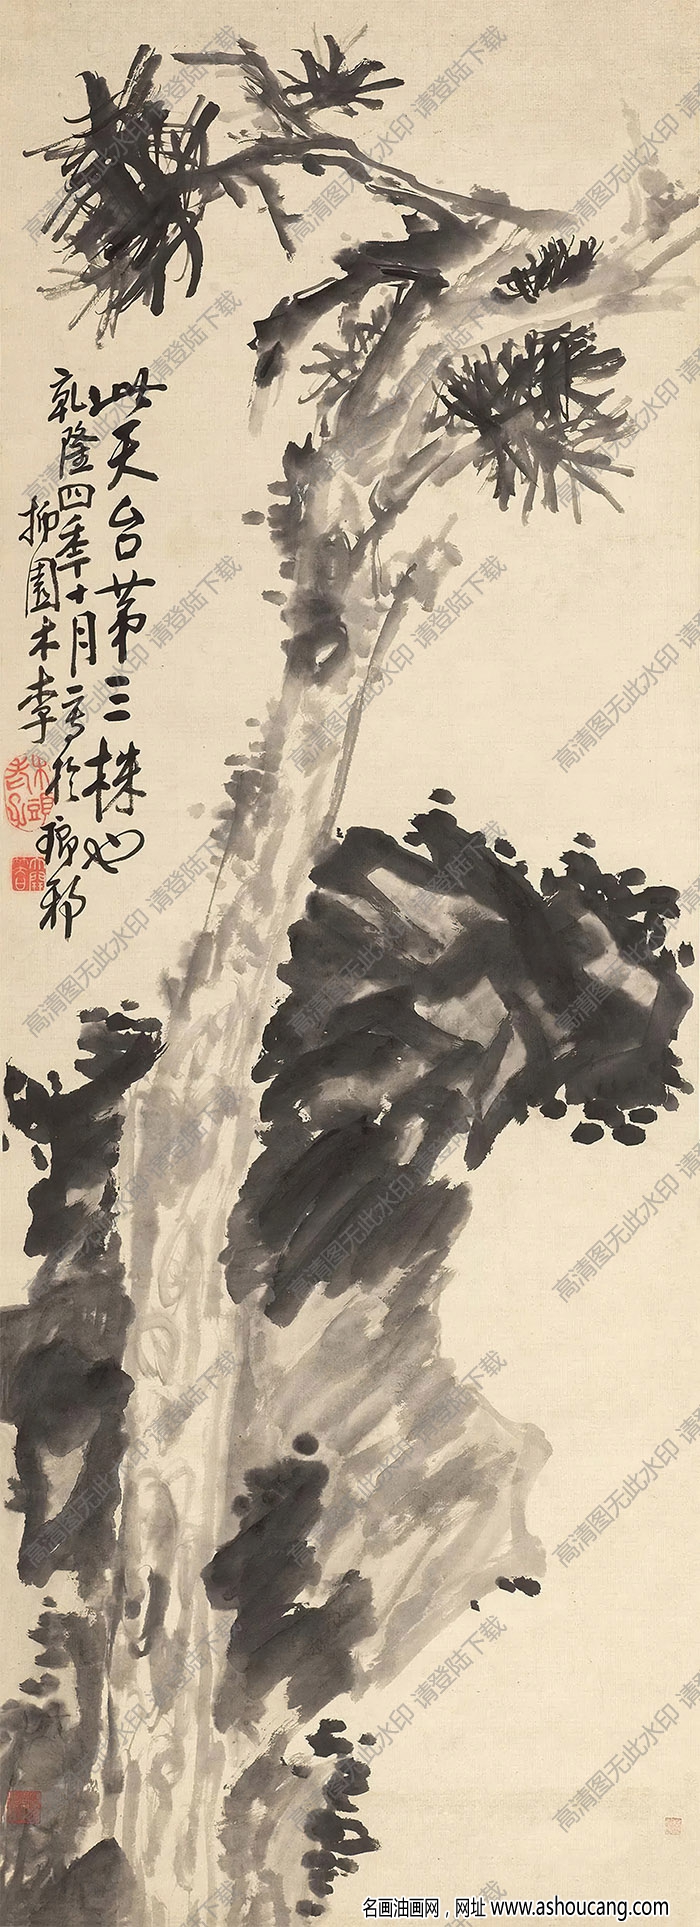 此天台苐三株也
乾隆四年十月一写於琅邪
抑園木李
名画油画网，网址 www.ashoucang.com
高清图无此水印 请登陆下载